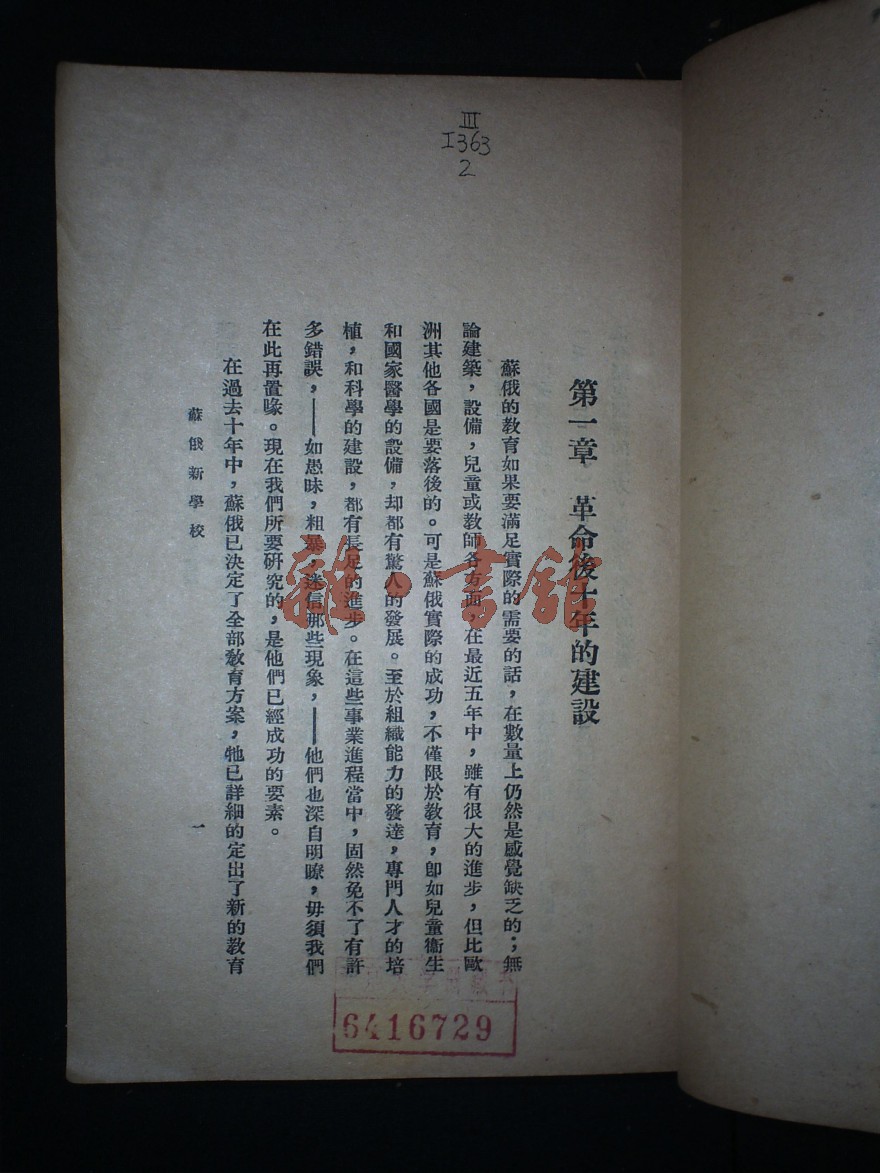 III
I363
2
第一章 革命後十年的建設
蘇俄的教育如果要滿足實際的需要的話，在數量上仍然是感覺缺乏的；無
論建築，設備，兒童或教師各方面，在最近五年中，雖有很大的進步，但比歐
洲其他各國是要落後的。可是蘇俄實際的成功，不僅限於教育，卽如兒童衞生
和國家醫學的設備，却都有驚人的發展。至於組織能力的發達，專門人才的培
植，和科學的建設，都有長足的進步。在這些事業進程當中，固然免不了有許
多錯誤，——如愚昧，粗暴，迷信那些現象，——他們也深自明瞭，毋須我們
在此再置喙。現在我們所要研究的，是他們已經成功的要素。
在過去十年中，蘇俄已決定了全部敎育方案，牠已詳細的定出了新的教育
蘇俄新學校
一
雜·書館
6416729